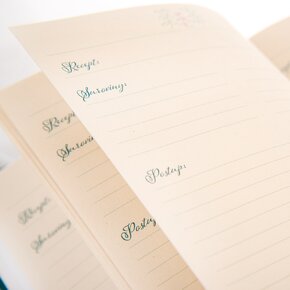 Recept:
Suroviny:
Postup:
Recept:
Suroviny:
Postup:
Recept:
Suroviny: